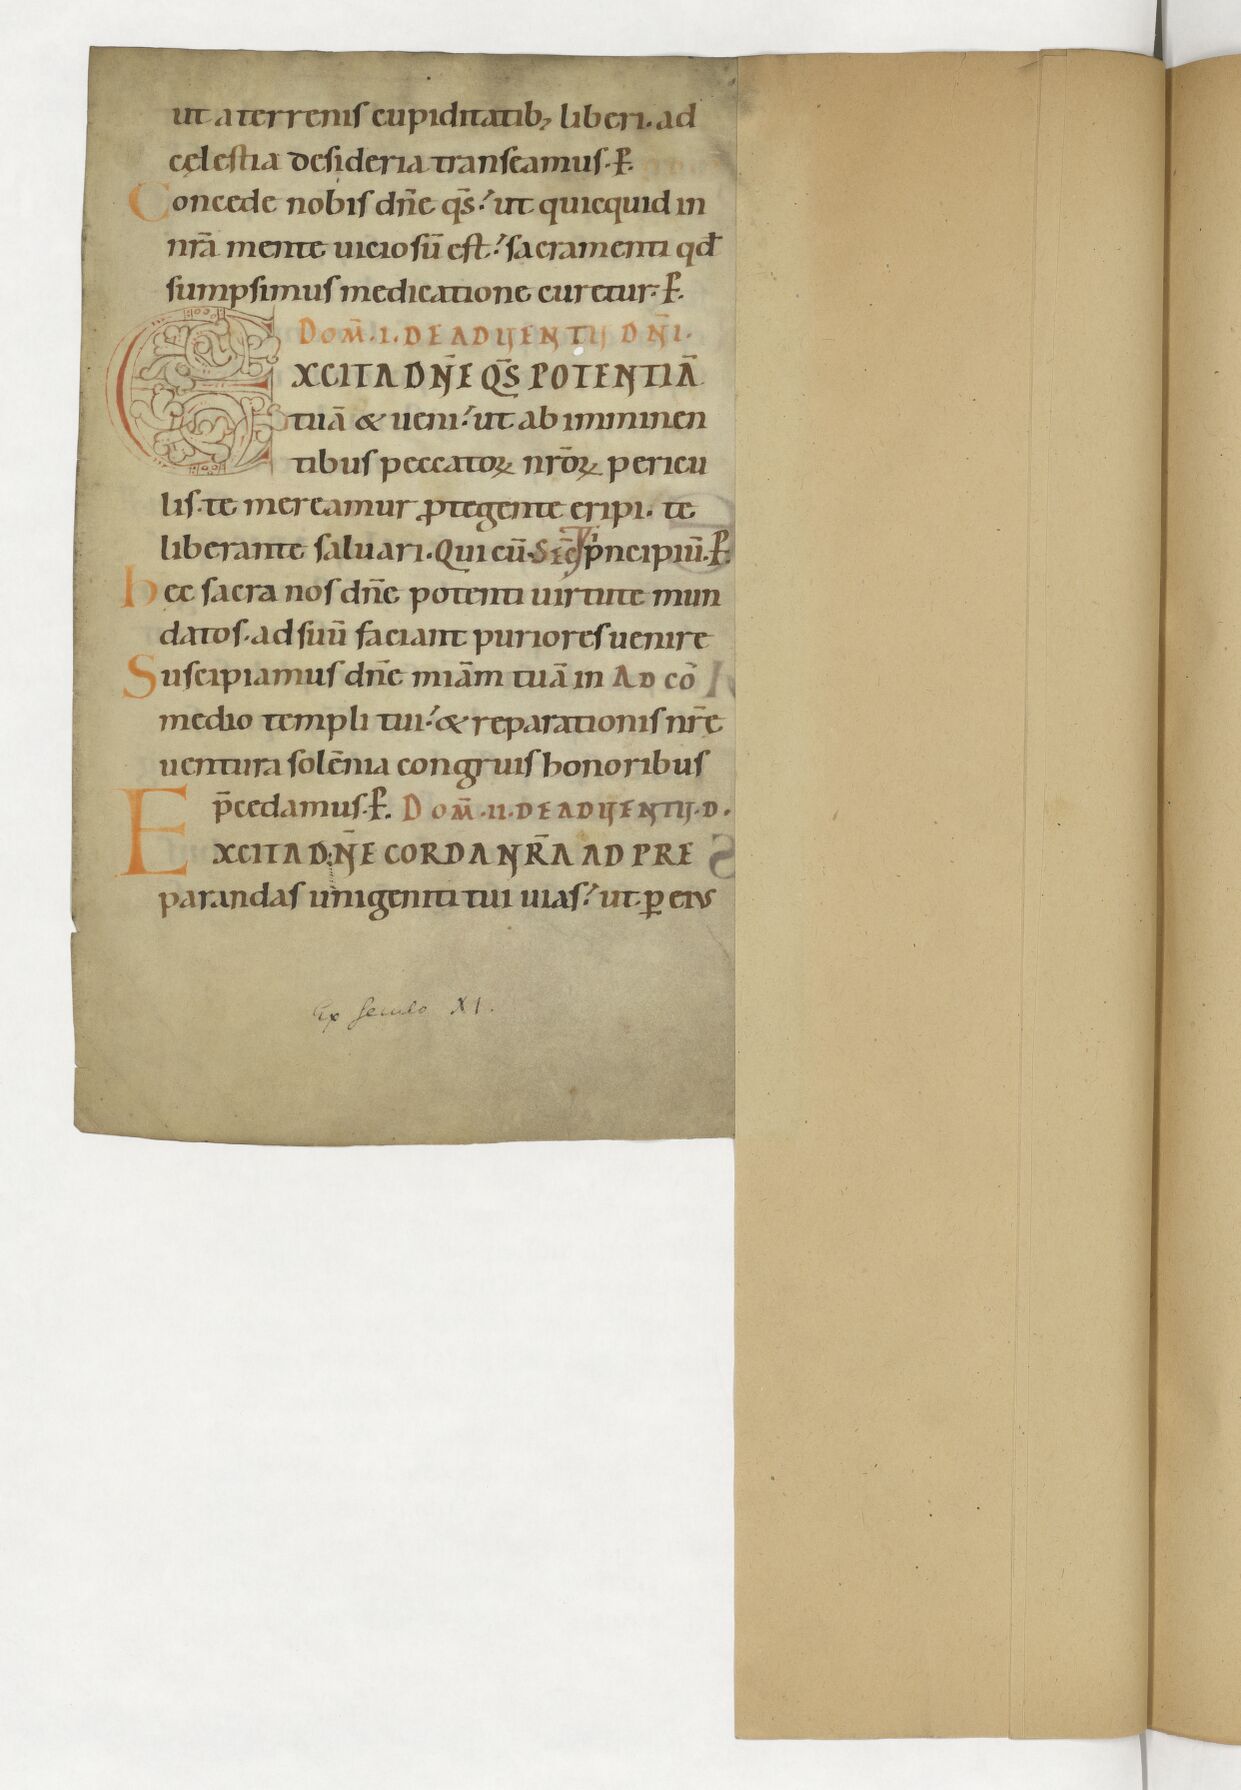 ut a terrenis cupiditatib; liberi. ad
cęlestia desideria transeamus. P̱.
Concede nobis dn̄e qs̄ ut quicquid in
nr̄a mente uiciosū est: sacramenti qđ
sumpsimus medicatione curetur. P̱.
DOM̄. I. DE ADUENTU DN̄I.
EXCITA DN̄E QS̄ POTENTIĀ
tuā & ueni: ut ab imminen
tibus peccatoꝝ nr̄oꝝ pericu
lis. te mereamur ꝓtegente eripi. te
liberante saluari. Qui cū. SEC̄ pⁱncipiū. P̱.
hęc sacra nos dn̄e potenti uirtute mun
datos. ad suū faciant puriores uenire
Suscipiamus dn̄e mīam tuā in AD CŌ
medio templi tui: & reparationis nr̄ę
uentura solēnia congruis honoribus
p̄cedamus. P̱. DOM̄. II. DE ADUENTU. D.
EXCITA DN̄E CORDA NR̄A AD PRE
parandas unigeniti tui uias: ut ꝑ eius
Ex seculo XI.